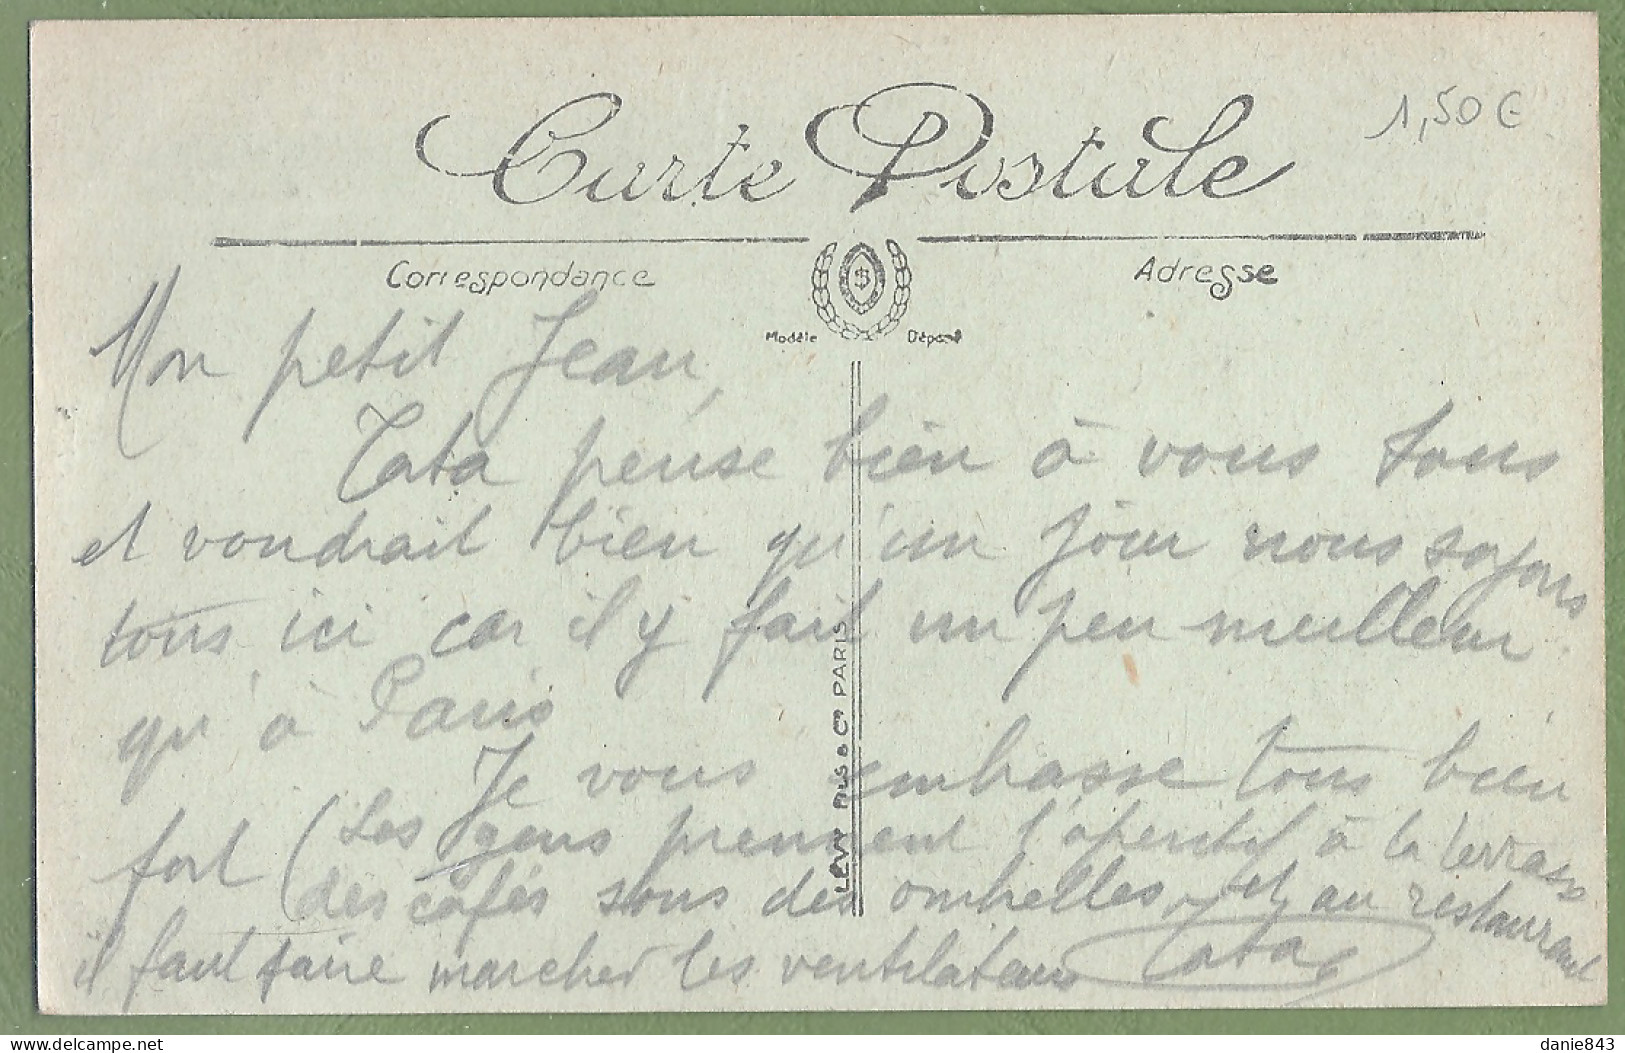 Carte Postale
1,50 €
Correspondance
Adresse
$
Modèle Déposé
Mon petit Jean,
Tata pense bien à vous tous
et voudrait bien qu'un jour nous soyons
tous ici car il y fait un peu meilleur
qu'à Paris
Je vous embrasse tous bien
fort (Les gens prennent l'aperitif à la terrasse
des cafés sous des ombrelles, et au restaurant
il faut faire marcher les ventilateurs Tata
LÉVY FILS & Cie PARIS
delcampe.net
danie843